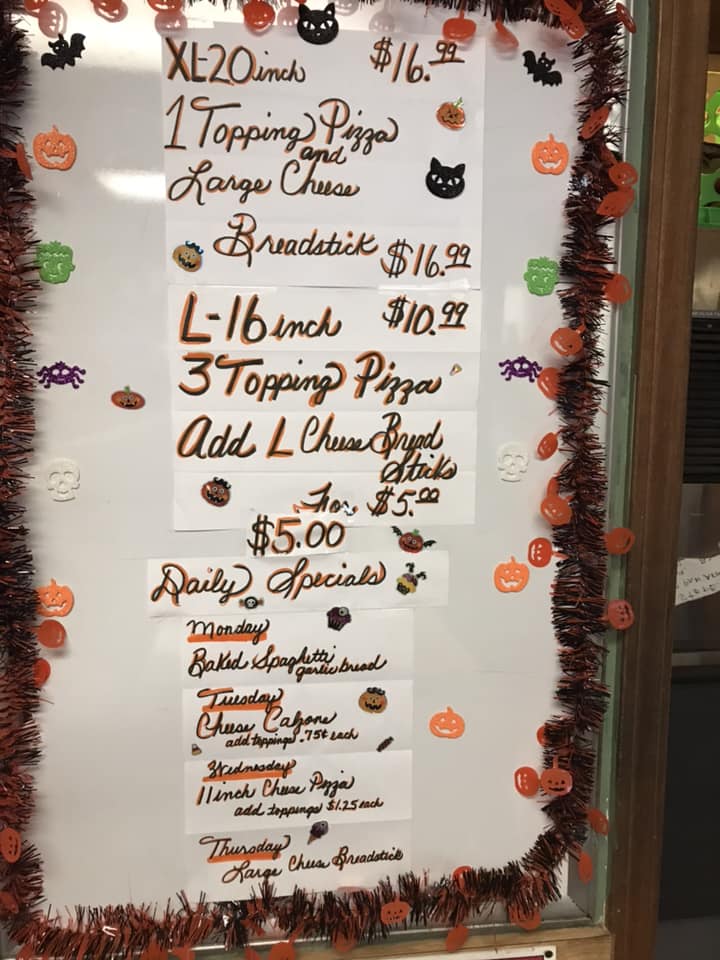 XL-20 inch $16.99
1 Topping Pizza
and
Large Cheese
Breadstick $16.99
L-16 inch $10.99
3 Topping Pizza
Add L Cheese Bread
Sticks
For $5.00
$5.00
Daily Specials
Monday
Baked Spaghetti
garlic bread
Tuesday
Cheese Calzone
add toppings .75¢ each
Wednesday
11 inch Cheese Pizza
add toppings $1.25 each
Thursday
Large Cheese Breadstick